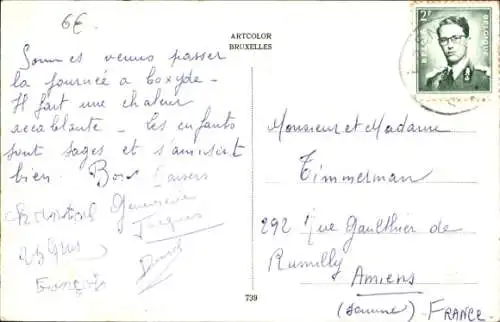 6€
ARTCOLOR
BRUXELLES
2F
BELGIQUE
Sommes venus passer
la journée à Coxyde -
Il fait une chaleur
accablante - les enfants
sont sages et s'amusent
bien. Bons Baisers
Geneviève
Jacques
François
Monsieur et Madame
Timmerman
292 Rue Gaulthier de
Rumilly
Amiens
(Somme) - FRANCE -
739